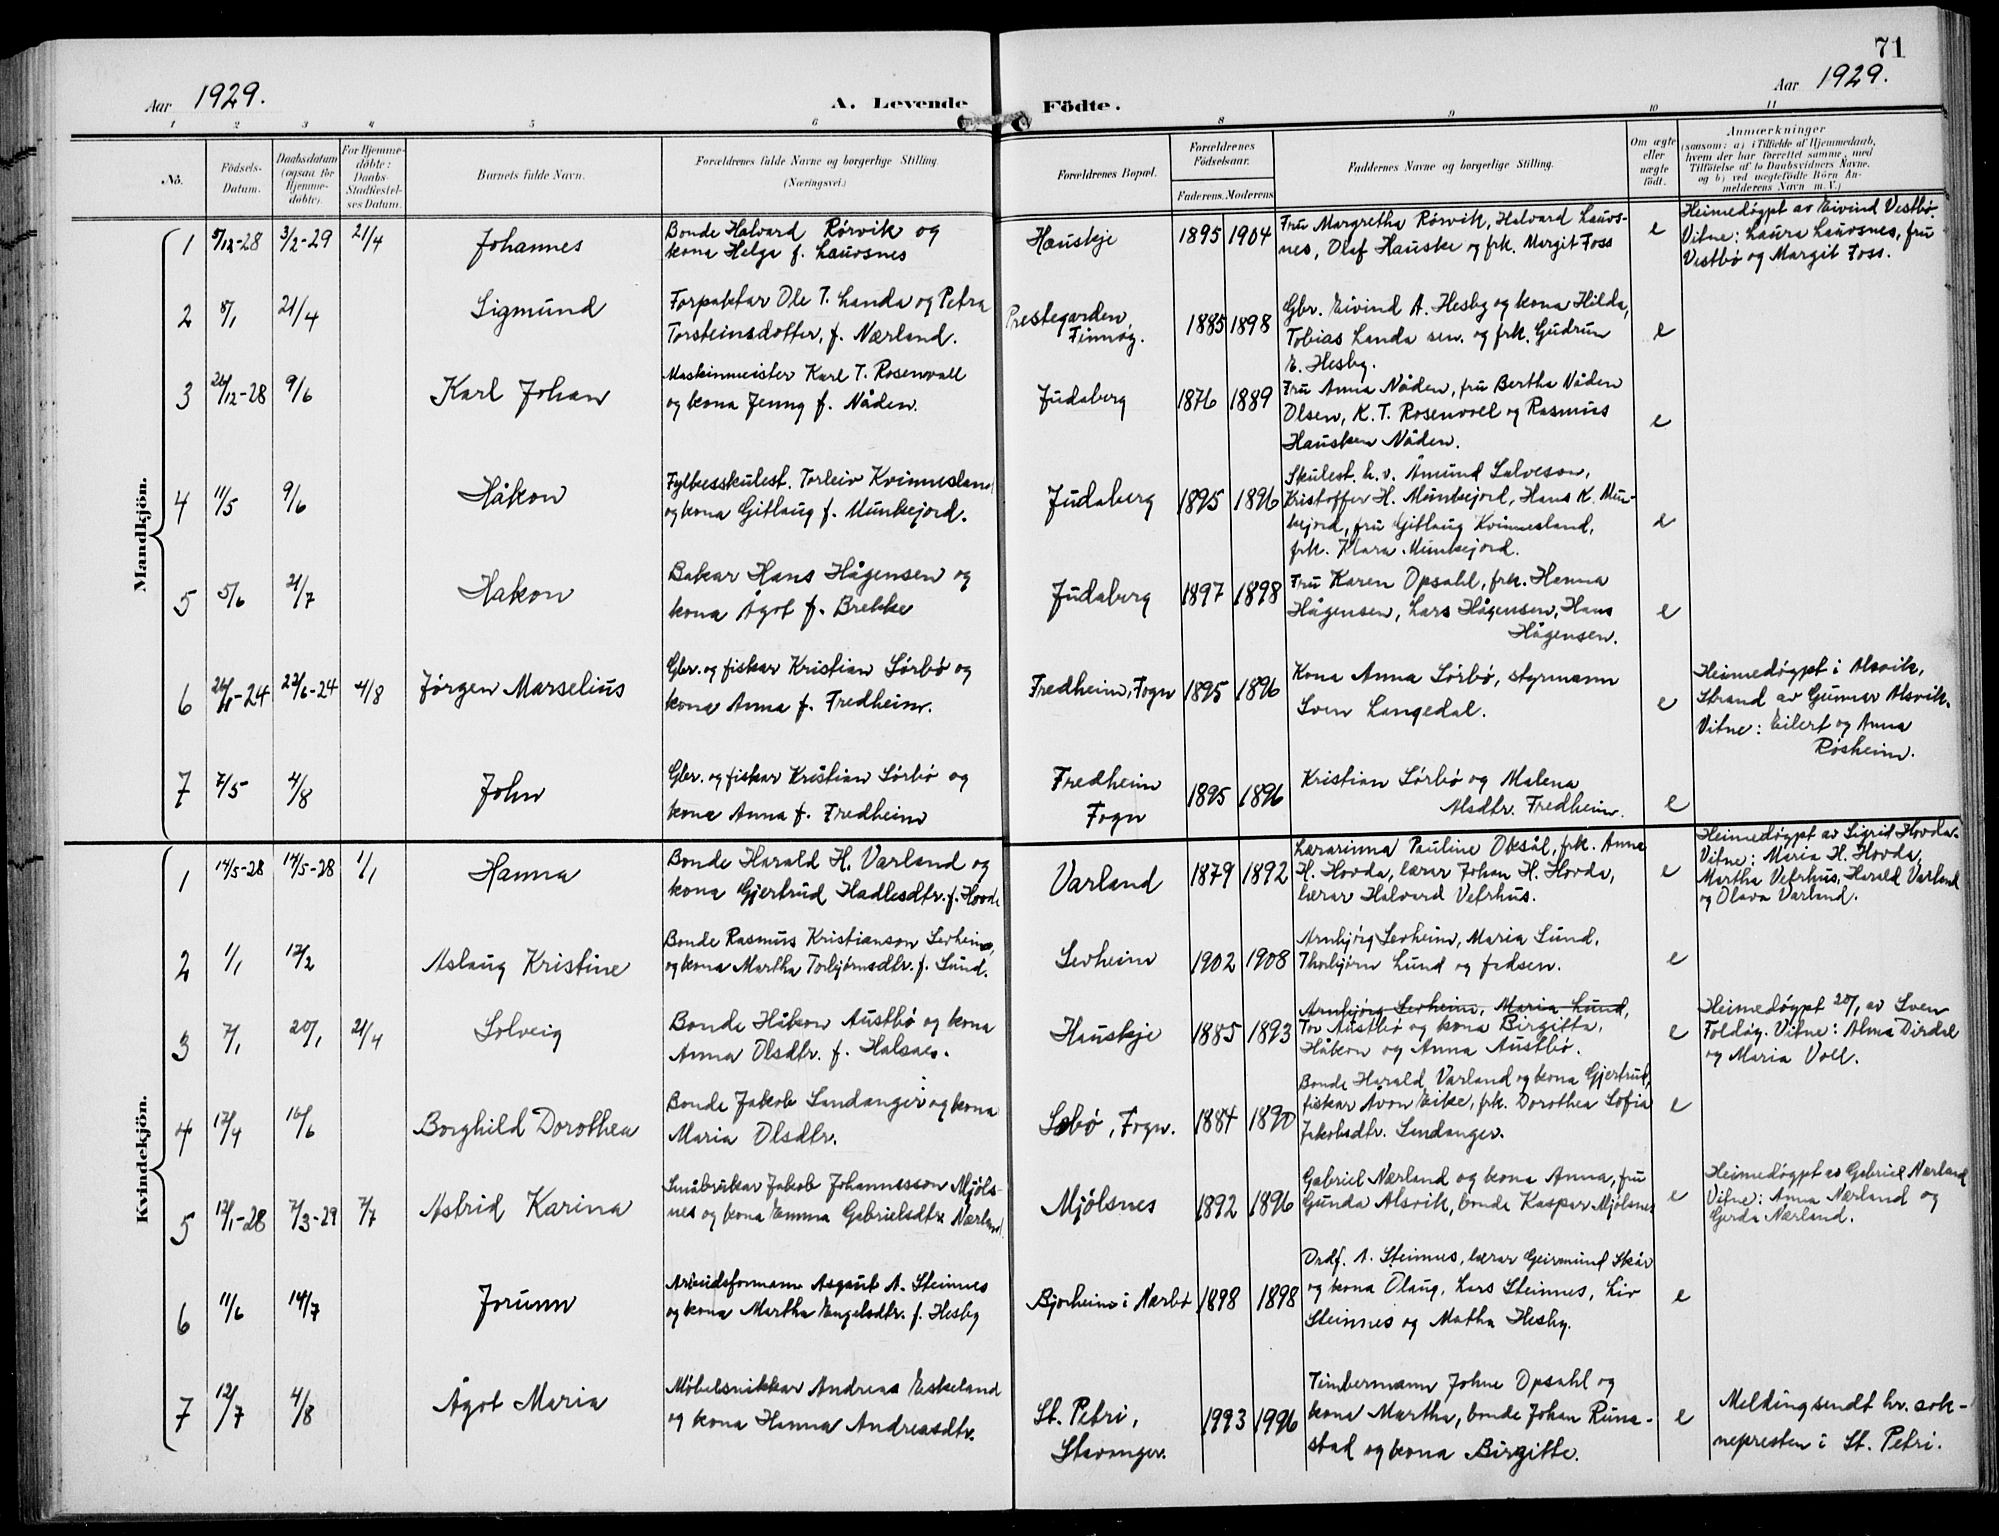 71
Aar 1929.
A. Levende Födte.
Aar 1929.
1 2 3 4 5 6 8 9 10 11
No.
Födsels-Datum.
Daabsdatum (ogsaa for Hjemme-döbte).
For Hjemme-döbte: Daabs-Stadfæstel-ses Datum.
Barnets fulde Navn.
Forældrenes fulde Navne og borgerlige Stilling.
(Næringsvei.)
Forældrenes Bopæl.
Forældrenes Födselsaar.
Faderens. Moderens
Faddernes Navne og borgerlige Stilling.
Om ægte eller uægte födt.
Anmærkninger
(saasom: a) i Tilfælde af Hjemmedaab,
hvem der har forrettet samme, med
Tilföielse af to Daabsvidners Navne,
og b) ved uægtefödte Börn An-
melderens Navn m. V.)
Mandkjön.
1 5/12-28 3/2-29 21/4 Johannes
Bonde Halvard Rørvik og
kona Helga f. Lauvsnes
Hauskje 1895 1904
Fru Margretha Rørvik, Halvard Lauvs-
nes, Olaf Hauske og frk. Margit Foss
e
Heimedøypt av Eivind Vestbø.
Vitne: Laura Lauvsnes, fru
Vestbø og Margit Foss.
2 8/1 21/4 Sigmund
Forpaktar Ole T. Landa og Petra
Torsteinsdotter, f. Nærland.
Prestegarden,
Finnøy.
1885 1898
Gbr. Eivind A. Hesby og kona Hilda,
Tobias Landa sen. og frk. Gudrun
E. Hesby.
e
3 26/12-28 9/6 Karl Johan
Maskinmeister Karl T. Rosenvall
og kona Jenny f. Nåden.
Judaberg 1876 1889
Fru Anna Nåden, fru Bertha Nåden
Olsen, K. T. Rosenvoll og Rasmus
Hausken Nåden.
e
4 11/5 9/6 Håkon
Fylkesskulest. Torleiv Kvinnesland
og kona Gitlaug f. Munkejord.
Judaberg 1895 1896
Skulest. h. v. Åmund Salveson,
Kristoffer H. Munkejord, Hans K. Mun-
kejord, fru Gitlaug Kvinnesland,
frk. Klara Munkejord.
e
5 5/6 21/7 Hakon
Bakar Hans Hågensen og
kona Ågot f. Brekke
Judaberg 1897 1898
Fru Karen Opsahl, frk. Hanna
Hågensen, Lars Hågensen, Hans
Hågensen.
e
6 22/6-24 4/8 Jørgen Marselius
Gbr. og fiskar Kristian Sørbø og
kona Anna f. Fredheim.
Fredheim, Fogn 1895 1896
Kona Anna Sørbø, styrmann
Sven Langedal.
e
Heimedøypt i Alsvik,
Strand av Gunnar Alsvik.
Vitne: Eilert og Anna
Røsheim.
7 7/5 4/8 John
Gbr. og fiskar Kristian Sørbø og
kona Anna f. Fredheim
Fredheim
Fogn
1895 1896
Kristian Sørbø og Malena
Alsdtr. Fredheim.
e
Kvindekjön.
1 14/5-28 14/5-28 1/1 Hanna
Bonde Harald H. Varland og
kona Gjertrud Hadlesdtr. f. Hovda
Varland 1879 1892
Lærarinna Pauline Oksål, frk. Anna
H. Hovda, lærar Johan H. Hovda,
lærar Halvard Vetrhus.
e
Heimedøypt av Sigrid Hovda.
Vitne: Maria H. Hovda,
Martha Vetrhus, Harald Varland
og Olava Varland.
2 1/1 17/2 Aslaug Kristine
Bonde Rasmus Kristianson Sevheim,
og kona Martha Torbjørnsdtr. f. Lund.
Sevheim 1902 1908
Arnbjørg Sevheim, Maria Lund,
Thorbjørn Lund og fødsen.
e
3 7/1 20/1 21/4 Solveig
Bonde Håkon Austbø og kona
Anna Olsdtr. f. Halsnes.
Hauskje 1885 1893
Arnbjørg Sevheim, Maria Lund,
Tor Austbø og kona Birgitta,
Håkon og Anna Austbø.
e
Heimedøypt 20/1 av Sven
Foldøy. Vitne: Alma Dirdal
og Maria Voll.
4 12/4 16/6 Borghild Dorothea
Bonde Jakob Sandanger og kona
Maria Olsdtr.
Søbø, Fogn. 1884 1890
Bonde Harald Varland og kona Gjertrud,
fiskar Avon Eike, frk. Dorothea Sofia
Jakobsdtr. Sandanger.
e
5 12/1-28 7/3-29 7/7 Astrid Karina
Småbrukar Jakob Johannesson Mjøls-
nes og kona Emma Gabrielsdtr. Nærland.
Mjølsnes 1892 1896
Gabriel Nærland og kona Anna, fru
Gunda Alsvik, bonde Kaspar Mjølsnes
e
Heimedøypt av Gabriel Nærland
Vitne: Anna Nærland og
Gerda Nærland.
6 11/6 14/7 Jorunn
Arbeidsformann Asgaut A. Steinnes
og kona Martha Engelsdtr. f. Hesby
Bjorheim i Nærbø 1898 1898
Ordf. A. Steinnes, lærar Geirmund Skår
og kona Olaug, Lars Steinnes, Liv
Steinnes og Matha Hesby.
e
7 12/7 4/8 Ågot Maria
Møbelsnikkar Andreas Eskeland
og kona Hanna Andreasdtr.
St. Petri,
Stavanger.
1993 1996
Timbermann Johne Opsahl og
kona Martha, bonde Johan Runa-
stad og kona Birgitte.
e
Melding sendt hr. sok-
nepresten i St. Petri.